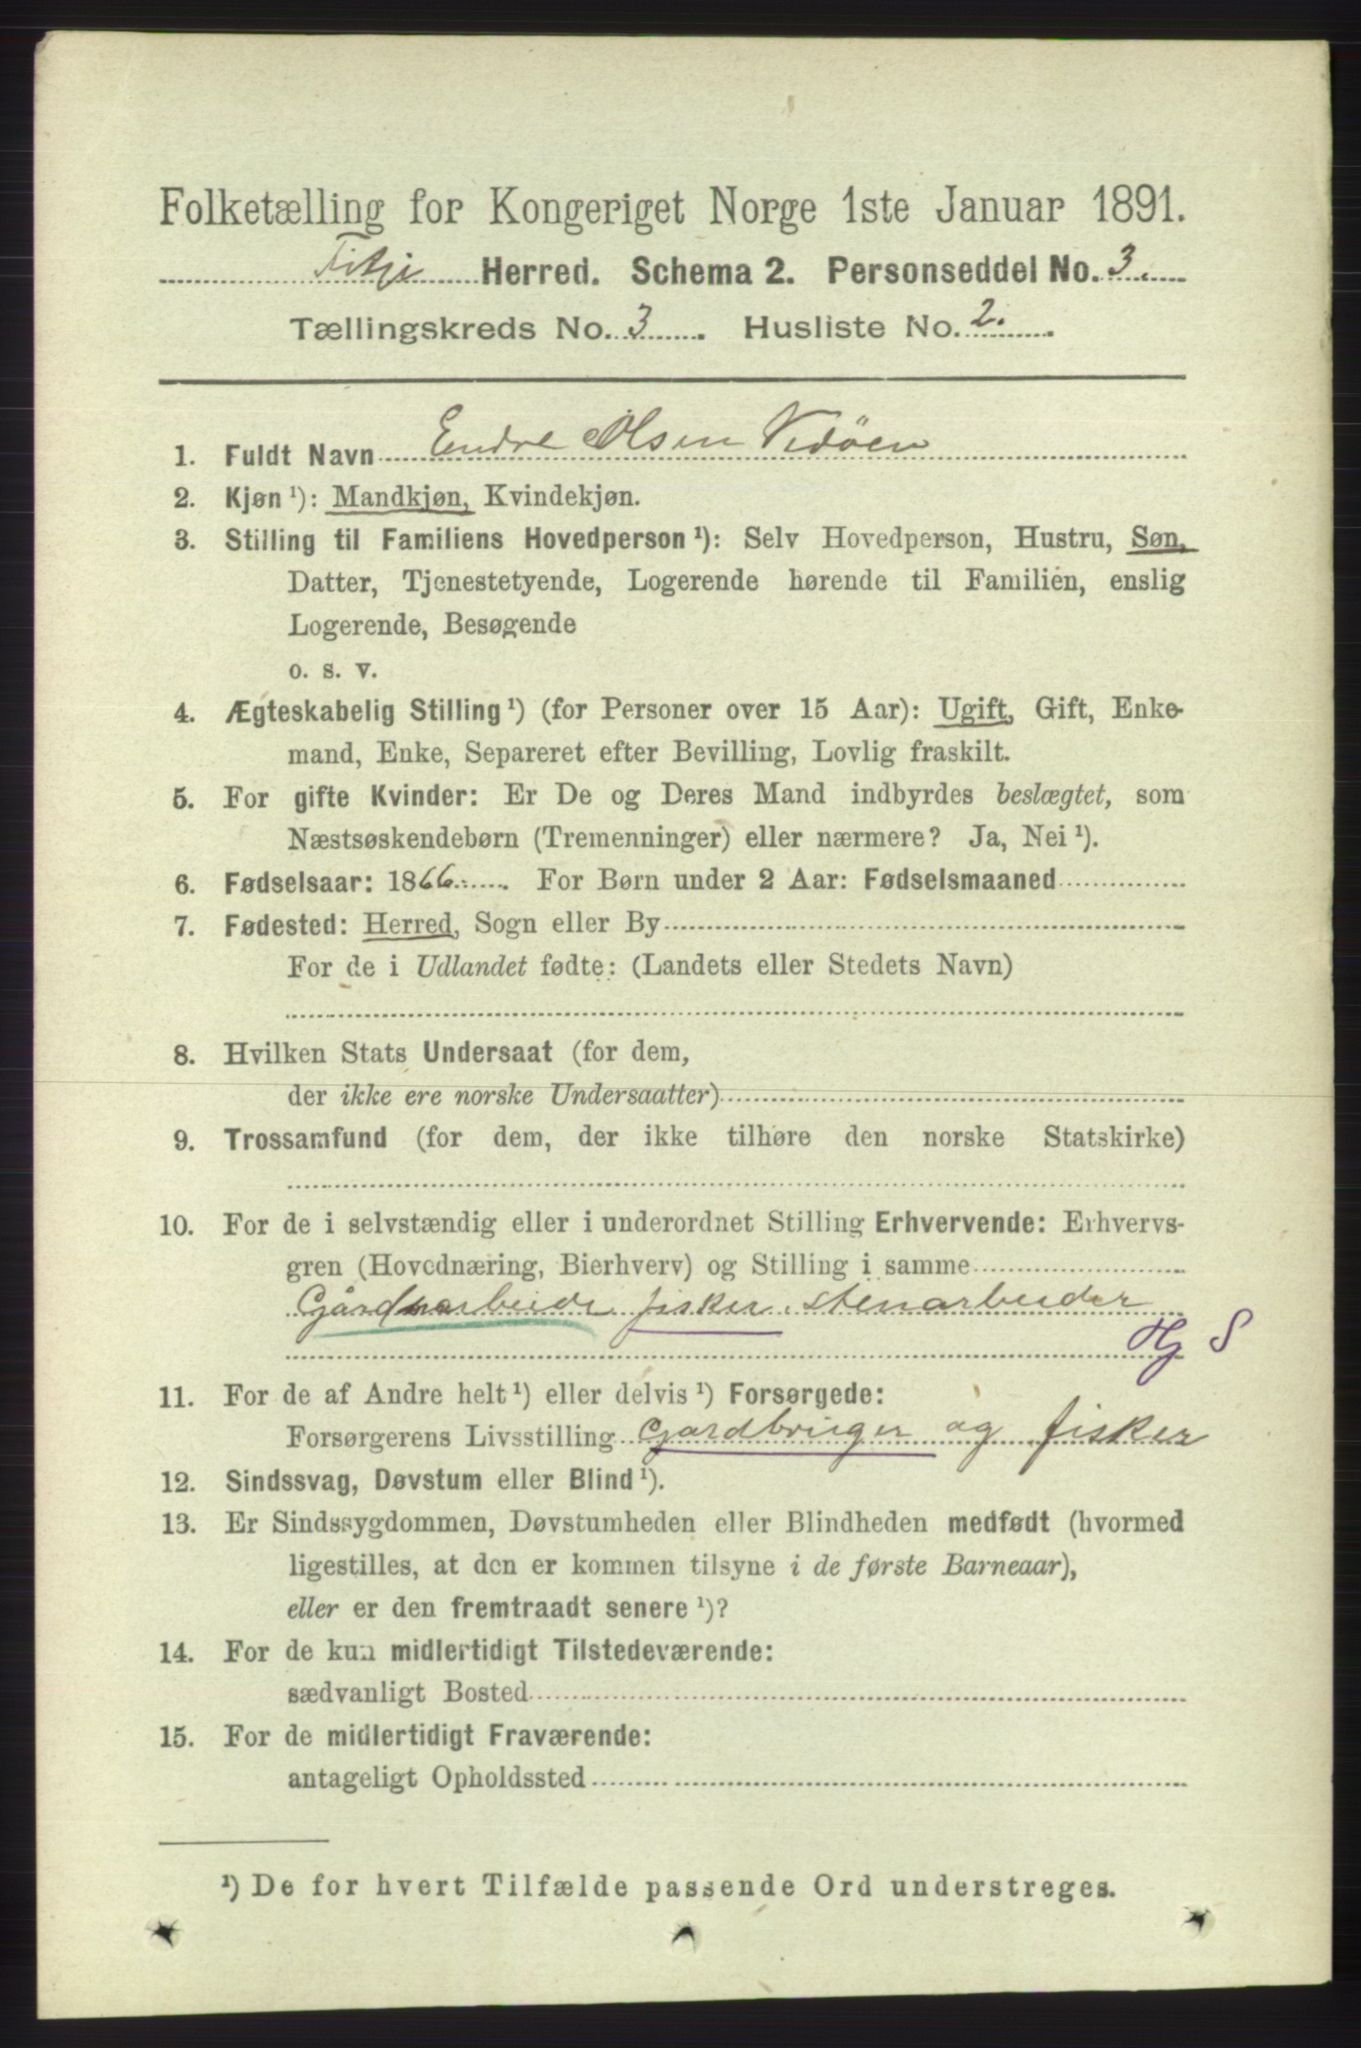 Folketælling for Kongeriget Norge 1ste Januar 1891.
Fitje Herred. Schema 2. Personseddel No. 3.
Tællingskreds No. 3. Husliste No. 2.
1. Fuldt Navn Endre Olsen Vidöen
2. Kjøn ¹): Mandkjøn, Kvindekjøn.
3. Stilling til Familiens Hovedperson ¹): Selv Hovedperson, Hustru, Søn,
Datter, Tjenestetyende, Logerende hørende til Familien, enslig
Logerende, Besøgende
o. s. v.
4. Ægteskabelig Stilling ¹) (for Personer over 15 Aar): Ugift, Gift, Enke-
mand, Enke, Separeret efter Bevilling, Lovlig fraskilt.
5. For gifte Kvinder: Er De og Deres Mand indbyrdes beslægtet, som
Næstsøskendebørn (Tremenninger) eller nærmere? Ja, Nei ¹).
6. Fødselsaar: 1866. For Børn under 2 Aar: Fødselsmaaned
7. Fødested: Herred, Sogn eller By
For de i Udlandet fødte: (Landets eller Stedets Navn)
8. Hvilken Stats Undersaat (for dem,
der ikke ere norske Undersaatter)
9. Trossamfund (for dem, der ikke tilhøre den norske Statskirke)
10. For de i selvstændig eller i underordnet Stilling Erhvervende: Erhvervs-
gren (Hovednæring, Bierhverv) og Stilling i samme
Gårdsarbeide fisker, stenarbeider
Hg S
11. For de af Andre helt ¹) eller delvis ¹) Forsørgede:
Forsørgerens Livsstilling Gardbruger og fisker
12. Sindssvag, Døvstum eller Blind ¹).
13. Er Sindssygdommen, Døvstumheden eller Blindheden medfødt (hvormed
ligestilles, at den er kommen tilsyne i de første Barneaar),
eller er den fremtraadt senere ¹)?
14. For de kun midlertidigt Tilstedeværende:
sædvanligt Bosted
15. For de midlertidigt Fraværende:
antageligt Opholdssted
¹) De for hvert Tilfælde passende Ord understreges.